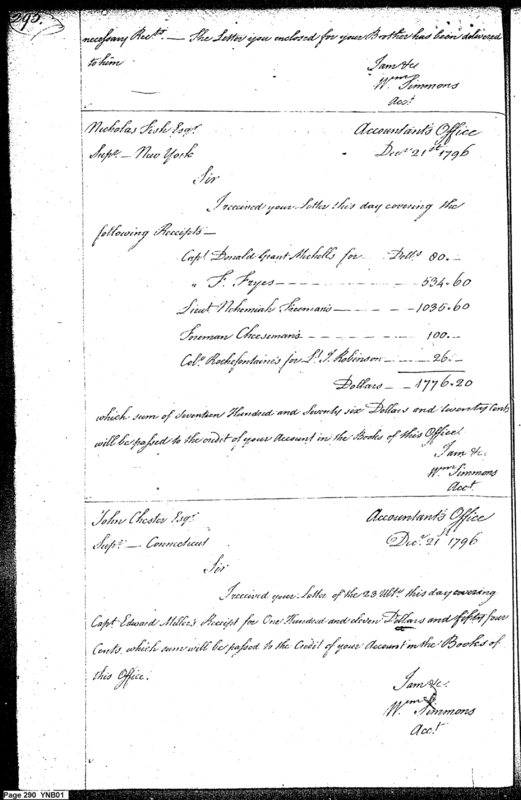 295.
necessary Rects — The Letter you enclosed for your Brother has been delivered
to him
I am &c
Wm Simmons
Acct
Nicholas Fish Esqr Accountant's Office
Supr — New York Decr 21st 1796
Sir
I received your Letter this day covering the
following Receipts —
Capt Donald Grant Mitchells for Dolls 80.—
" F. Fryes — 534.60
Lieut Nehemiah Freeman's — 1035.60
Freeman Cheeseman's — 100.—
Colo Rochefontaine's for Lt J. Robinson — 26.—
Dollars — 1776.20
which sum of Seventeen Hundred and Seventy six Dollars and twenty Cents
will be passed to the credit of your Account in the Books of this Office.
I am &c.
Wm Simmons
Acct
John Chester Esqr Accountant's Office
Supr — Connecticut Decr 21st 1796
Sir
I received your Letter of the 23 Ulto this day covering
Capt Edward Miller's Receipt for One Hundred and eleven Dollars and fifty four
Cents, which sum will be passed to the Credit of your Account in the Books of
this Office.
I am &c.
Wm Simmons
Acct
Page 290 YNB01